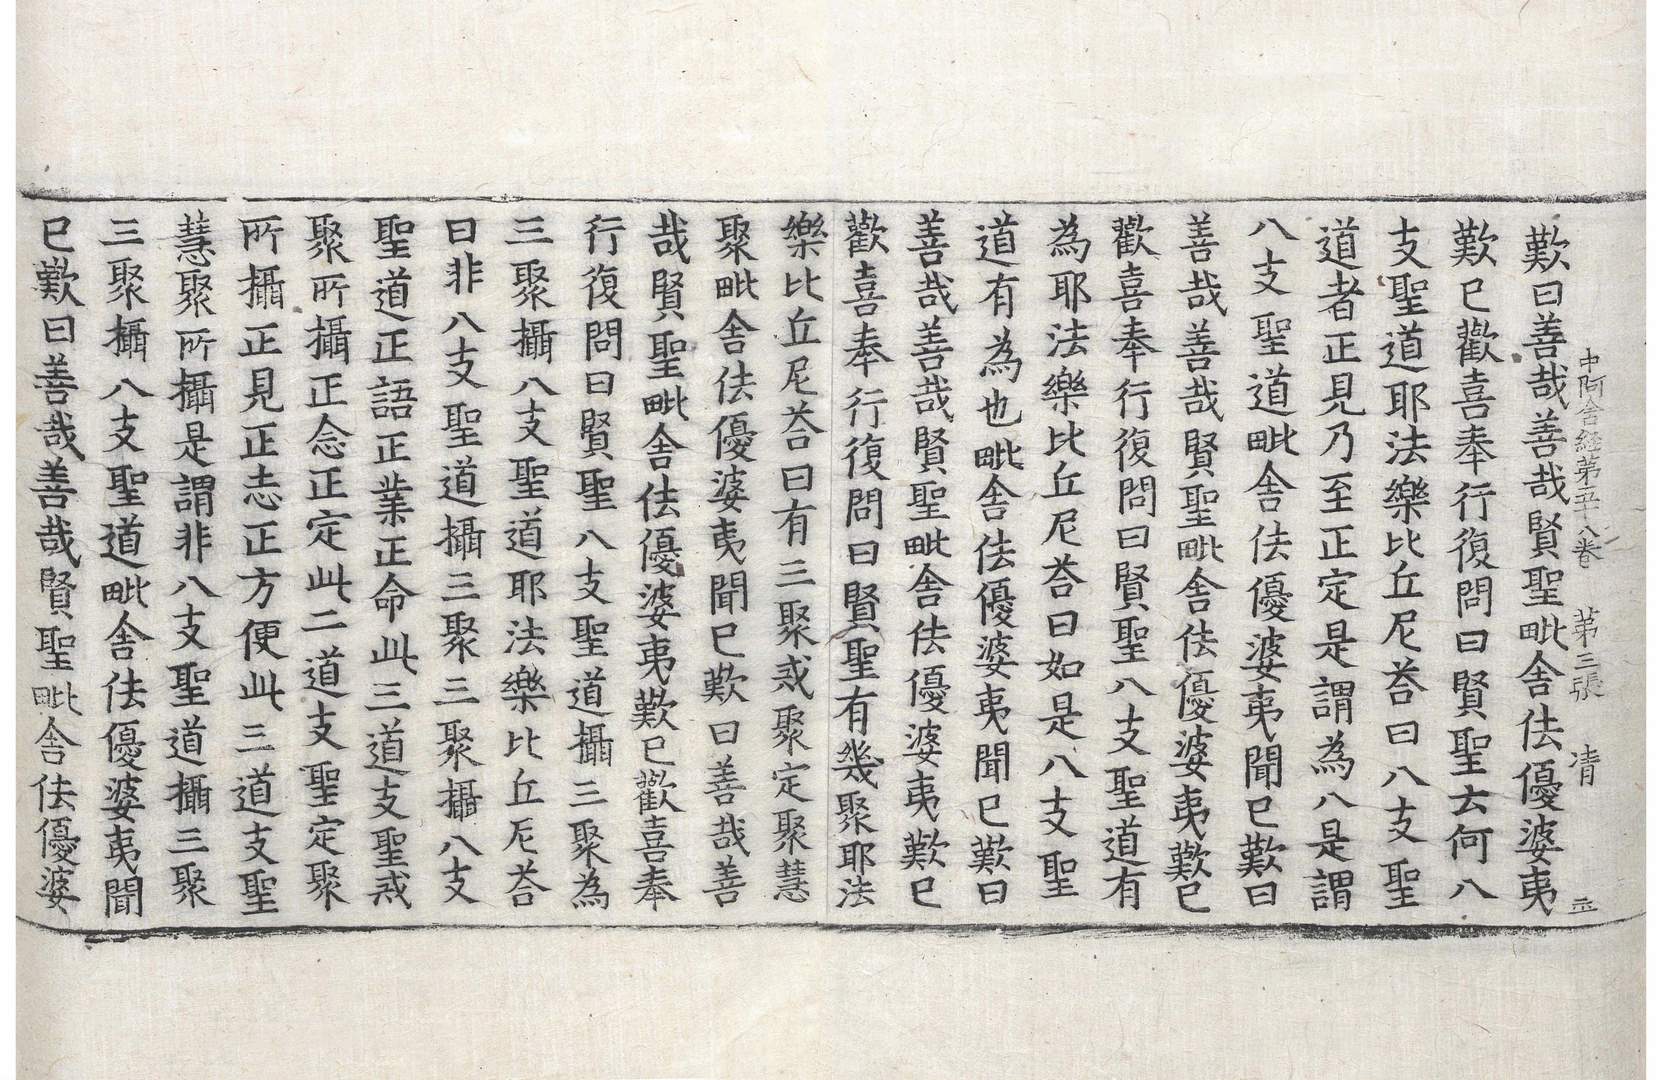 中阿含経第五十八卷　第三張　凊
歎曰善哉善哉賢聖毗舍佉優婆夷
歎已歡喜奉行復問曰賢聖云何八
支聖道耶法樂比丘尼荅曰八支聖
道者正見乃至正定是謂為八是謂
八支聖道毗舍佉優婆夷聞已歎曰
善哉善哉賢聖毗舍佉優婆夷歎已
歡喜奉行復問曰賢聖八支聖道有
為耶法樂比丘尼荅曰如是八支聖
道有為也毗舍佉優婆夷聞已歎曰
善哉善哉賢聖毗舍佉優婆夷歎已
歡喜奉行復問曰賢聖有幾聚耶法
樂比丘尼荅曰有三聚戒聚定聚慧
聚毗舍佉優婆夷聞已歎曰善哉善
哉賢聖毗舍佉優婆夷歎已歡喜奉
行復問曰賢聖八支聖道攝三聚為
三聚攝八支聖道耶法樂比丘尼荅
曰非八支聖道攝三聚三聚攝八支
聖道正語正業正命此三道支聖戒
聚所攝正念正定此二道支聖定聚
所攝正見正志正方便此三道支聖
慧聚所攝是謂非八支聖道攝三聚
三聚攝八支聖道毗舍佉優婆夷聞
已歎曰善哉善哉賢聖毗舍佉優婆